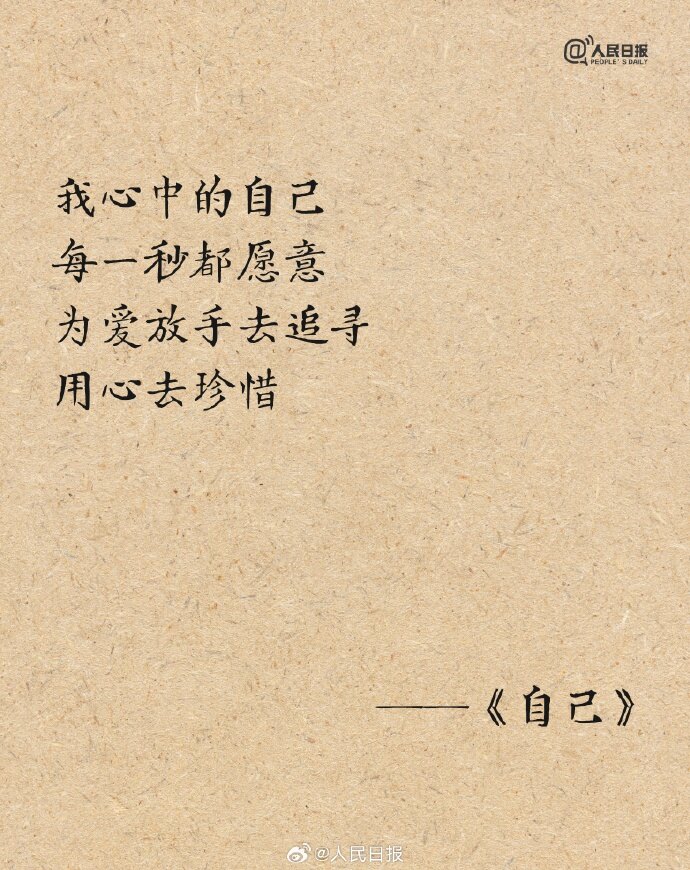 @人民日报
PEOPLE'S DAILY
我心中的自己
每一秒都愿意
为爱放手去追寻
用心去珍惜
——《自己》
@人民日报